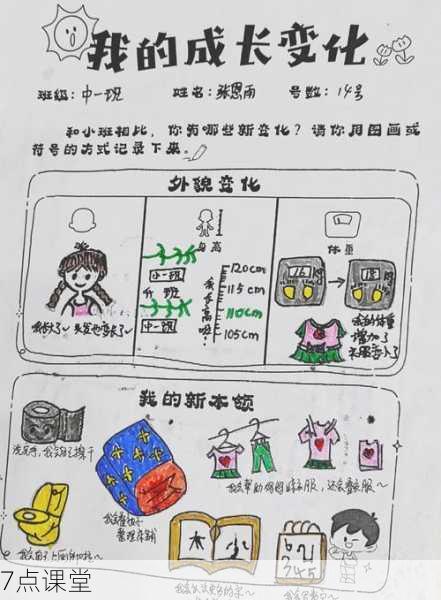 我的成长变化
班级：中一班 姓名：张恩雨 号数：14号
和小班相比，你有哪些新变化？请你用图画或
符号的方式记录下来。
外貌变化
身高
体重
小一班
升 班
中一班
我长高啦！
120cm
115cm
110cm
105cm
16
18
我长大了~ 头发也变长了~
我的体重
增加了
衣服变小了
我的新本领
洗完手，我会自己擦干
我会叠被子
整理床铺
我会帮助妈妈晾衣服，还会叠衣服~
7点课堂